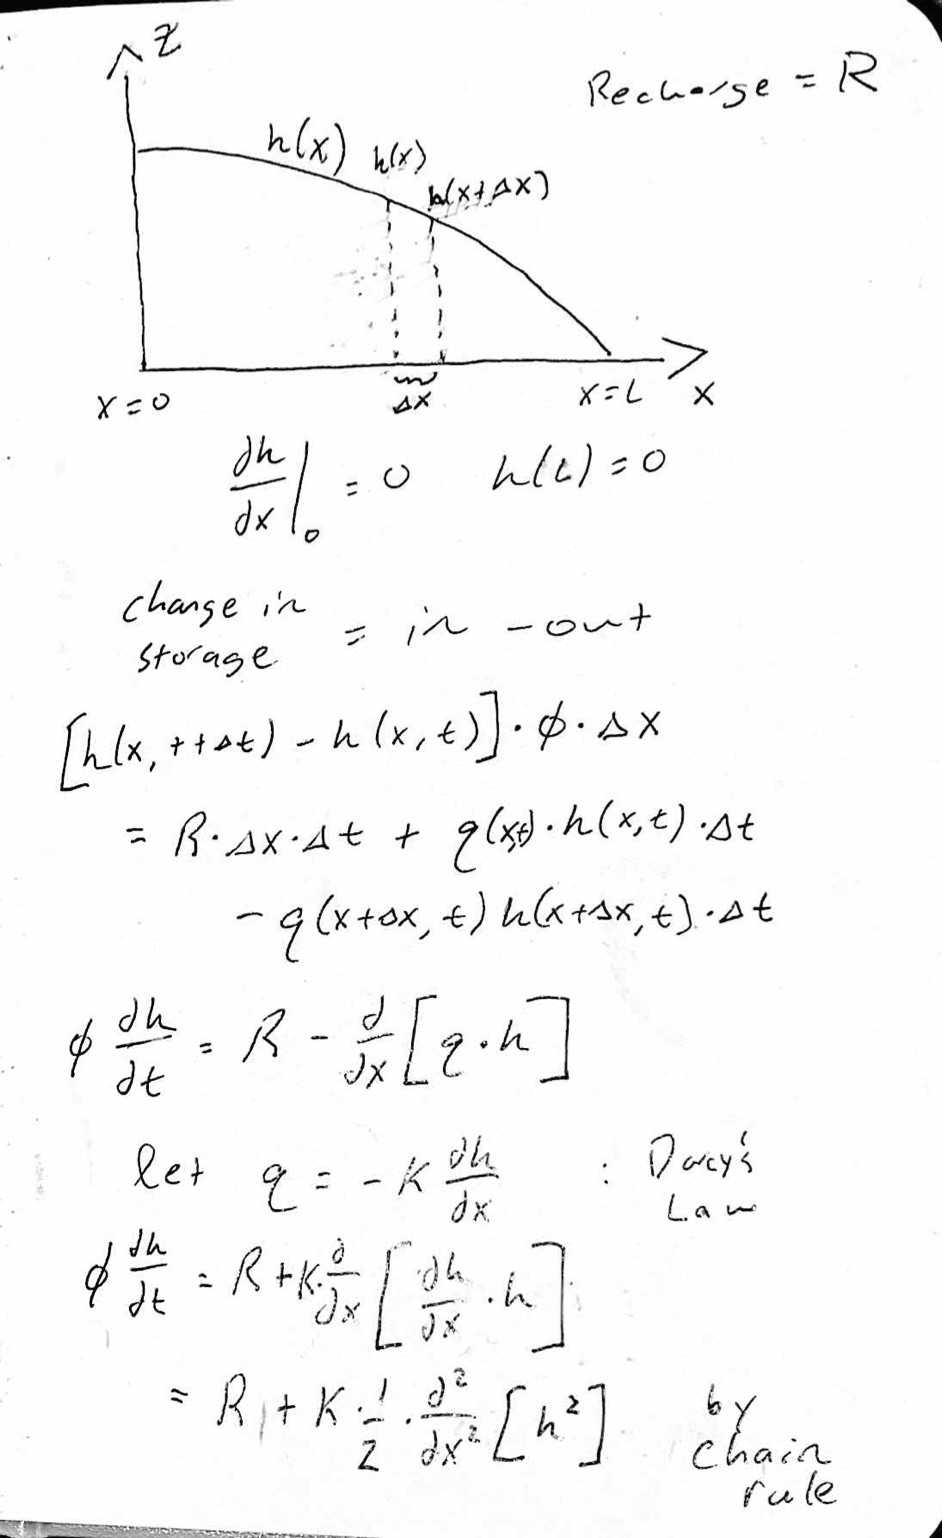 z
Recharge = R
h(x) h(x)
h(x+Δx)
x=0 Δx x=L x
∂h/∂x|₀ = 0 h(L)=0
change in storage = in - out
[h(x, t+Δt) - h(x,t)]·ϕ·Δx
= R·Δx·Δt + q(x,t)·h(x,t)·Δt
- q(x+Δx, t) h(x+Δx, t)·Δt
ϕ ∂h/∂t = R - ∂/∂x [q·h]
let q = -K ∂h/∂x : Darcy's Law
ϕ ∂h/∂t = R + K·∂/∂x [∂h/∂x · h]
= R + K·1/2·∂²/∂x² [h²] by chain rule